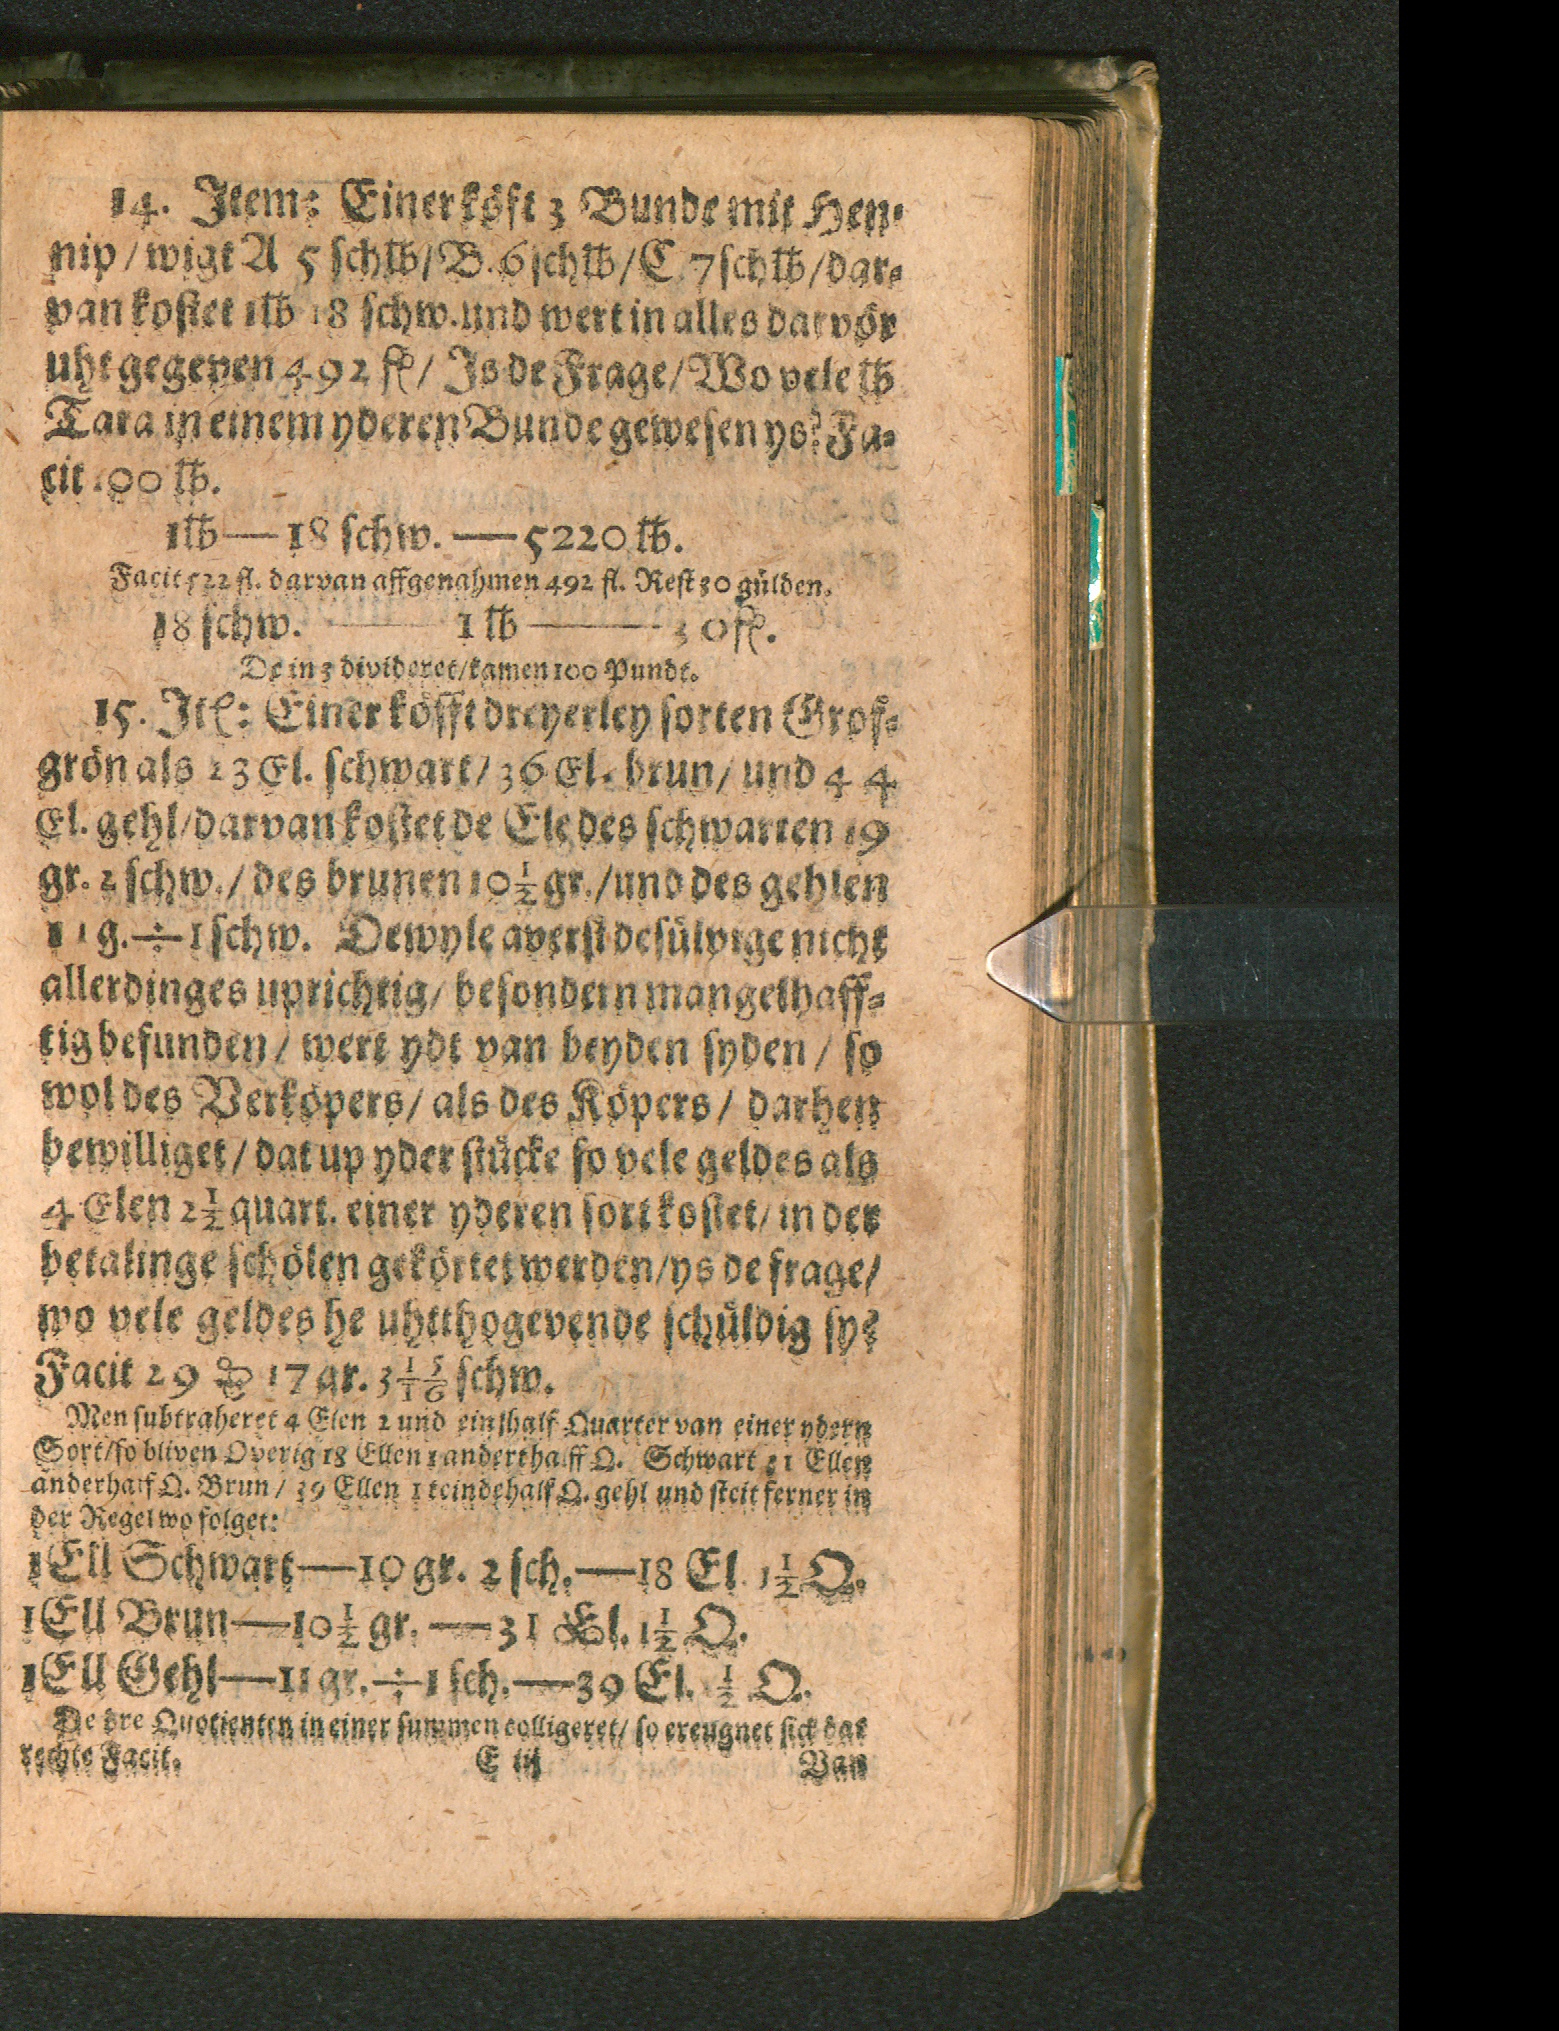 14. Item: Einer köft 3 Bunde mit Hen-
nip / wigt A 5 schlb / B. 6 schlb / C. 7 schlb / dar-
van kostet 1 lb 18 schw. und wert in alles darvör
uht gegeven 492 fl / Is de Frage / Wo vele lb
Tara in einem yderen Bunde gewesen ys? Fa-
cit 100 lb.
1 lb — 18 schw. — 5220 lb.
Facit 522 fl. darvan affgenahmen 492 fl. Rest 30 gülden.
18 schw. — 1 lb — 30 fl.
De in 3 divideret / kamen 100 Pundt.
15. Itē: Einer köfft dreyerley sorten Groß-
grön als 23 El. schwart / 36 El. brun / und 44
El. gehl / darvan kostet de Ele des schwarten 19
gr. 2 schw. / des brunen 10 1/2 gr. / und des gehlen
11 g. ÷ 1 schw. Dewyle averst desülvige nicht
allerdinges uprichtig / besondern mangelhaff-
tig befunden / wert ydt van beyden syden / so
wol des Verköpers / als des Köpers / darhen
bewilliget / dat up yder stücke so vele geldes als
4 Elen 2 1/2 quart. einer yderen sort kostet / in der
betalinge schölen gekörtet werden / ys de frage /
wo vele geldes he uhtthogevende schüldig sy?
Facit 29 17 gr. 3 1/1 5/6 schw.
Men subtraheret 4 Elen 2 und ein half Quarter van einer ydern
Sort / so bliven Overig 18 Ellen anderthalff Q. Schwart 31 Ellen
anderhalf Q. Brun / 39 Ellen 1 teindehalf Q. gehl und steit ferner in
der Regel wo folget:
1 Ell Schwart — 10 gr. 2 sch. — 18 El. 1 1/2 Q.
1 Ell Brun — 10 1/2 gr. — 31 El. 1 1/2 Q.
1 Ell Gehl — 11 gr. ÷ 1 sch. — 39 El. 1/2 Q.
De dre Quotienten in einer summen colligeret / so ereugnet sick dat
rechte Facit. E iij Van